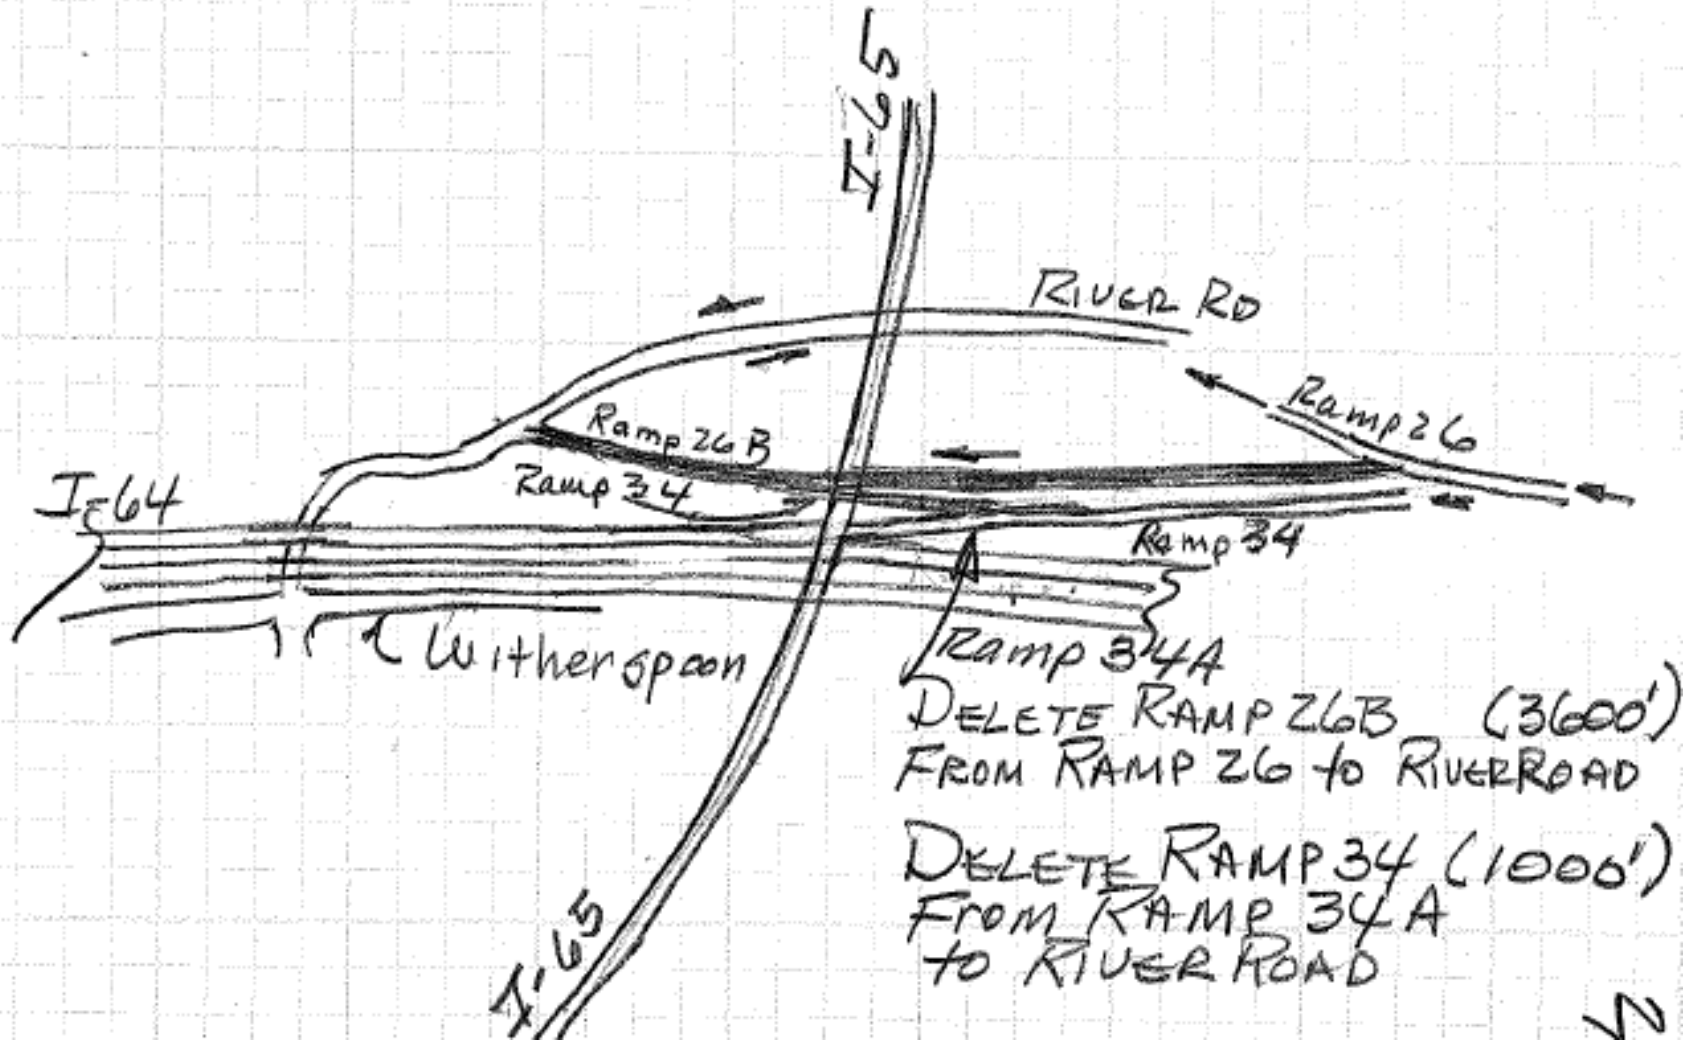 I-65
RIVER RD
Ramp 26
Ramp 26B
Ramp 34
I-64
Ramp 34
Witherspoon
Ramp 34A
DELETE RAMP 26B (3600')
FROM RAMP 26 to RIVER ROAD
DELETE RAMP 34 (1000')
FROM RAMP 34A
to RIVER ROAD
I-65